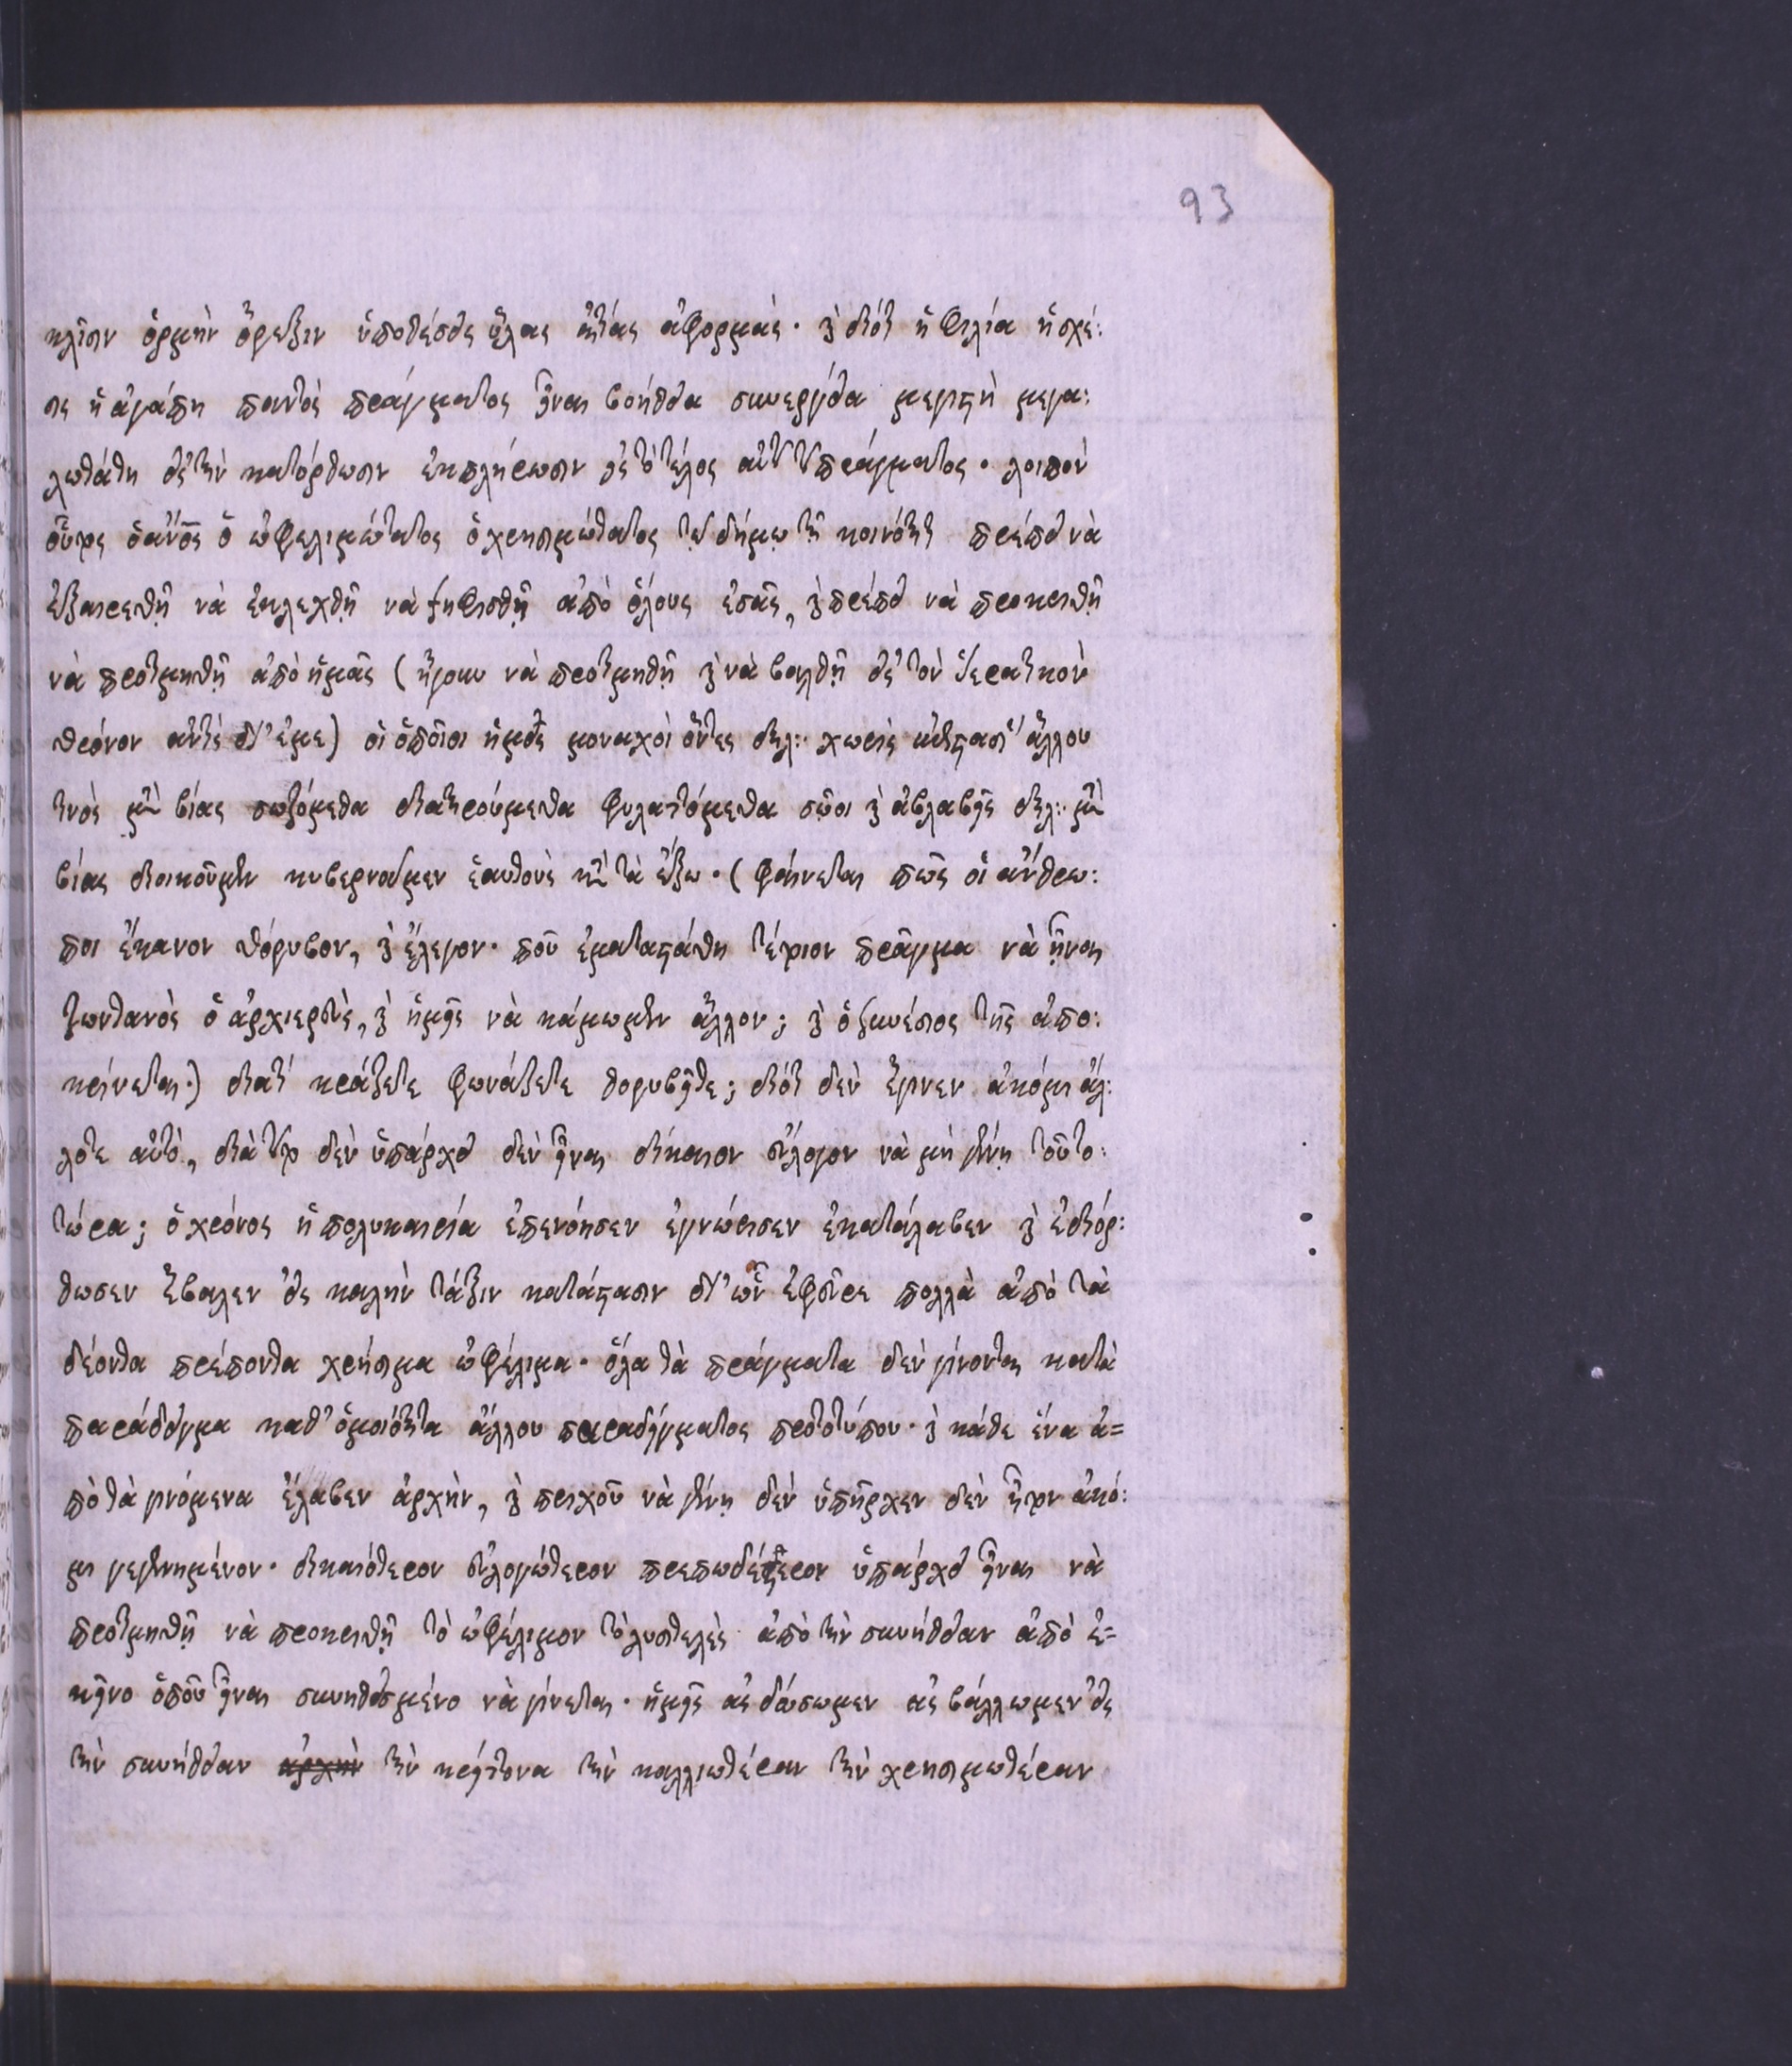 93
κλίσιν ὁρμὴν ὄρεξιν ὑποθέσεις ὕλας αἰτίας ἀφορμάς· καὶ διότι ἡ φιλία ἡ σχέ:
σις ἡ ἀγάπη παντὸς πράγματος εἶναι βοήθεια συνεργεία μεγίστη μεγα:
λωτάτη εἰς τὴν κατόρθωσιν ἐκπλήρωσιν εἰς τὸ τέλος αὐτοῦ τοῦ πράγματος· λοιπὸν
ὁ ὠφελιμώτατος ὁ χρησιμώτατος τῷ δήμῳ τῇ κοινότητι πρέπει νὰ
ἐξαιρεθῇ νὰ ἐκλεχθῇ νὰ ψηφισθῇ ἀπὸ ὅλους ἐσᾶς, καὶ πρέπει νὰ προκριθῇ
νὰ προτιμηθῇ ἀπὸ ἡμᾶς (ἤγουν νὰ προτιμηθῇ καὶ νὰ βαλθῇ εἰς τὸν ἱερατικὸν
θρόνον ἀντὶς δι' ἐμε) οἱ ὁποῖοι ἡμεῖς μοναχοὶ ὄντες δηλ: χωρὶς ἄλλου
τινὸς μετὰ βίας σωζόμεθα διατηρούμεθα φυλαττόμεθα σῶοι καὶ ἀβλαβεῖς δηλ: μετὰ
βίας διοικοῦμεν κυβερνοῦμεν ἑαυτοὺς κατὰ τὰ ἔξω· (φαίνεται πῶς οἱ ἄνθρω:
ποι ἔκανον θόρυβον, καὶ ἔλεγον· ποῦ ἐματαστάθη τέτοιον πρᾶγμα νὰ ἦναι
ζωντανὸς ὁ ἀρχιερεὺς, καὶ ἡμεῖς νὰ κάμωμεν ἄλλον; καὶ ὁ Συνέσιος τῆς ἀπο:
κρίνεται·) διατί κράζετε φωνάζετε θορυβεῖτε; διότι δὲν ἔγινεν ἀκόμι ἄλ:
λοτε αὐτό, διὰ τοῦτο δὲν ὑπάρχει δὲν εἶναι δίκαιον εὔλογον νὰ μὴ γένῃ τοῦτο:
τώρα; ὁ χρόνος ἡ πολυκαιρία ἐπενόησεν ἐγνώρισεν ἐκατάλαβεν καὶ ἐδιόρ:
θωσεν ἔβαλεν εἰς καλὴν τάξιν κατάστασιν δι' ὧν ἐφεῦρε πολλὰ ἀπὸ τὰ
δέοντα πρέποντα χρήσιμα ὠφέλιμα· ὅλα τὰ πράγματα δὲν γίνονται κατὰ
παράδειγμα καθ' ὁμοιότητα ἄλλου παραδείγματος προτοτύπου· καὶ κάθε ἕνα ἀ=
πὸ τὰ γινόμενα ἔλαβεν ἀρχὴν, καὶ πριχοῦ νὰ γένῃ δὲν ὑπῆρχεν δὲν ἦτον ἀκό:
μι γεγενημένον· δικαιότερον εὐλογώτερον πρεπωδέστερον ὑπάρχει εἶναι νὰ
προτιμηθῇ νὰ προκριθῇ τὸ ὠφέλιμον τὸ λυσιτελὲς ἀπὸ τὴν συνήθειαν ἀπὸ ἐ=
κεῖνο ὁποῦ εἶναι συνηθισμένο νὰ γίνεται· ἡμεῖς ἂς δώσωμεν ἂς βάλλωμεν εἰς
τὴν συνήθειαν ἀρχὴν τὴν κρείττονα τὴν καλλιωτέραν τὴν χρησιμωτέραν